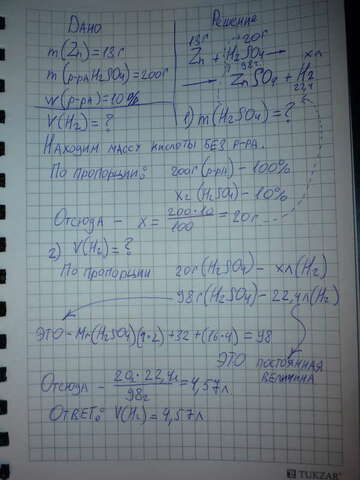 Дано
Решение
m(Zn)=13г
13г →20г
m(р-ра H2SO4)=200г
Zn + H2SO4 → xл
98г
w(р-ра)=10%
→ ZnSO4 + H2
22,4
V(H2)=?
1) m(H2SO4)=?
Находим массу кислоты БЕЗ р-ра.
По пропорции: 200г(р-ра) – 100%
xг(H2SO4) – 10%
Отсюда – x = 200·10/100 = 20г
2) V(H2)=?
По пропорции 20г(H2SO4) – xл(H2)
98г(H2SO4) – 22,4л(H2)
ЭТО – Mr(H2SO4)(1·2)+32+(16·4)=98
ЭТО ПОСТОЯННАЯ
ВЕЛИЧИНА
Отсюда – 20г·22,4л/98г = 4,57л
Ответ: V(H2)=4,57л
TUKZAR